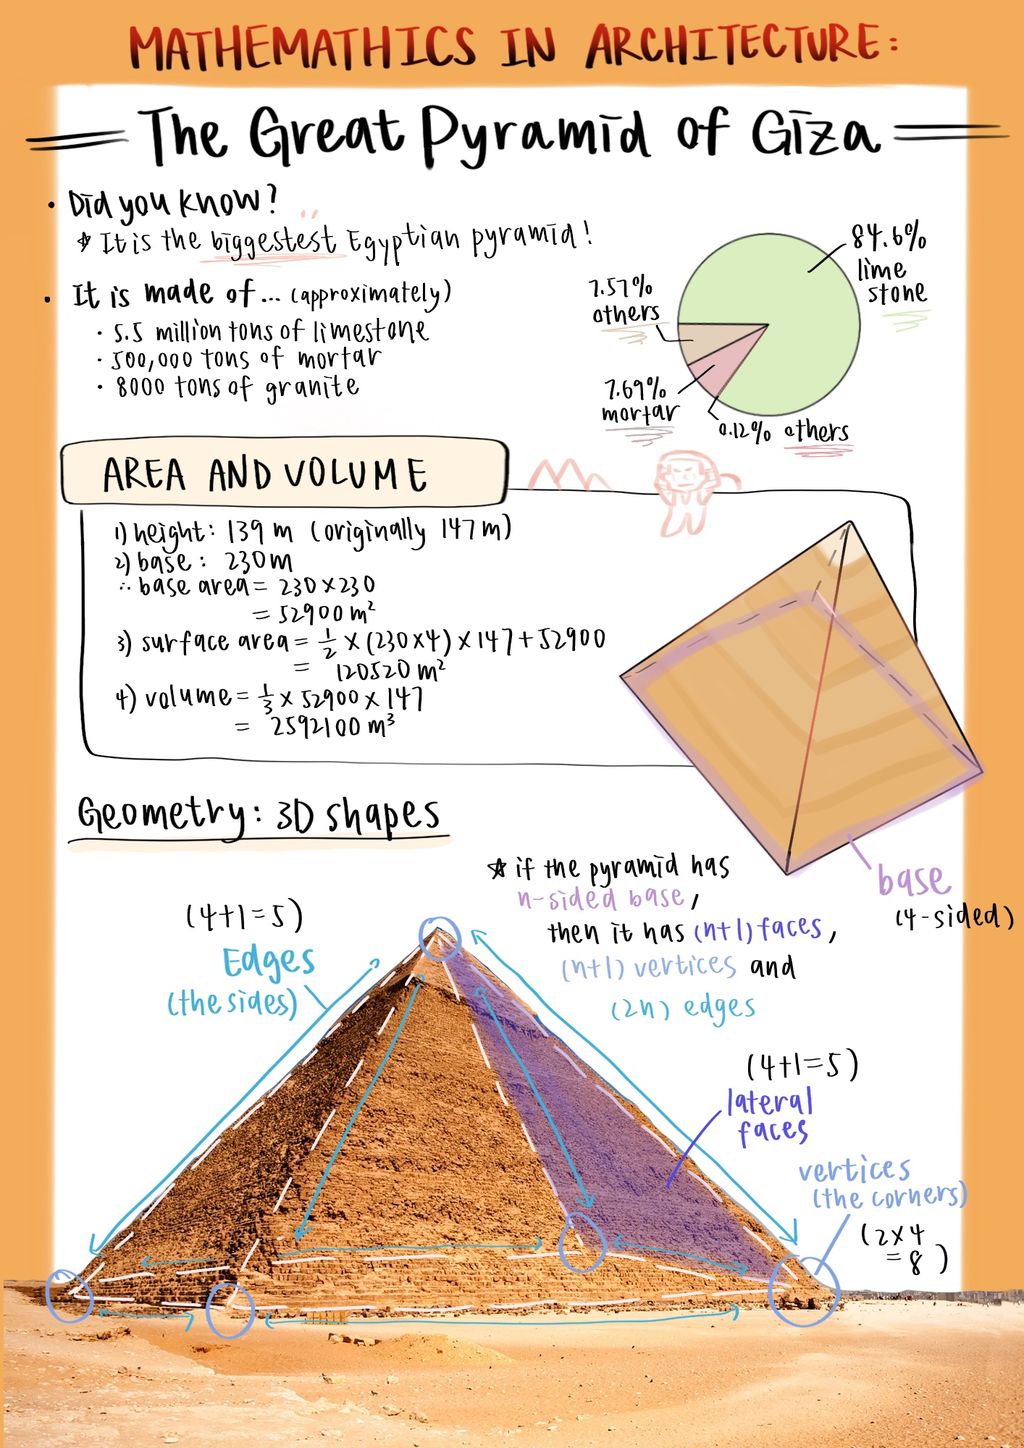 MATHEMATHICS IN ARCHITECTURE:
The Great Pyramid of Giza
• Did you know?
☆ It is the biggestest Egyptian pyramid!
• It is made of... (approximately)
• 5.5 million tons of limestone
• 500,000 tons of mortar
• 8000 tons of granite
84.6%
lime
stone
7.57%
others
7.69%
mortar
0.12% others
AREA AND VOLUME
1) height: 139 m (originally 147 m)
2) base: 230m
∴ base area = 230×230
= 52900 m²
3) surface area = ½ × (230×4) × 147 + 52900
= 120520 m²
4) volume = ⅓ × 52900 × 147
= 2592100 m³
base
(4-sided)
Geometry: 3D shapes
☆ if the pyramid has
n-sided base,
then it has (n+1) faces,
(n+1) vertices and
(2n) edges
(4+1=5)
Edges
(the sides)
(4+1=5)
lateral
faces
vertices
(the corners)
(2×4
=8)